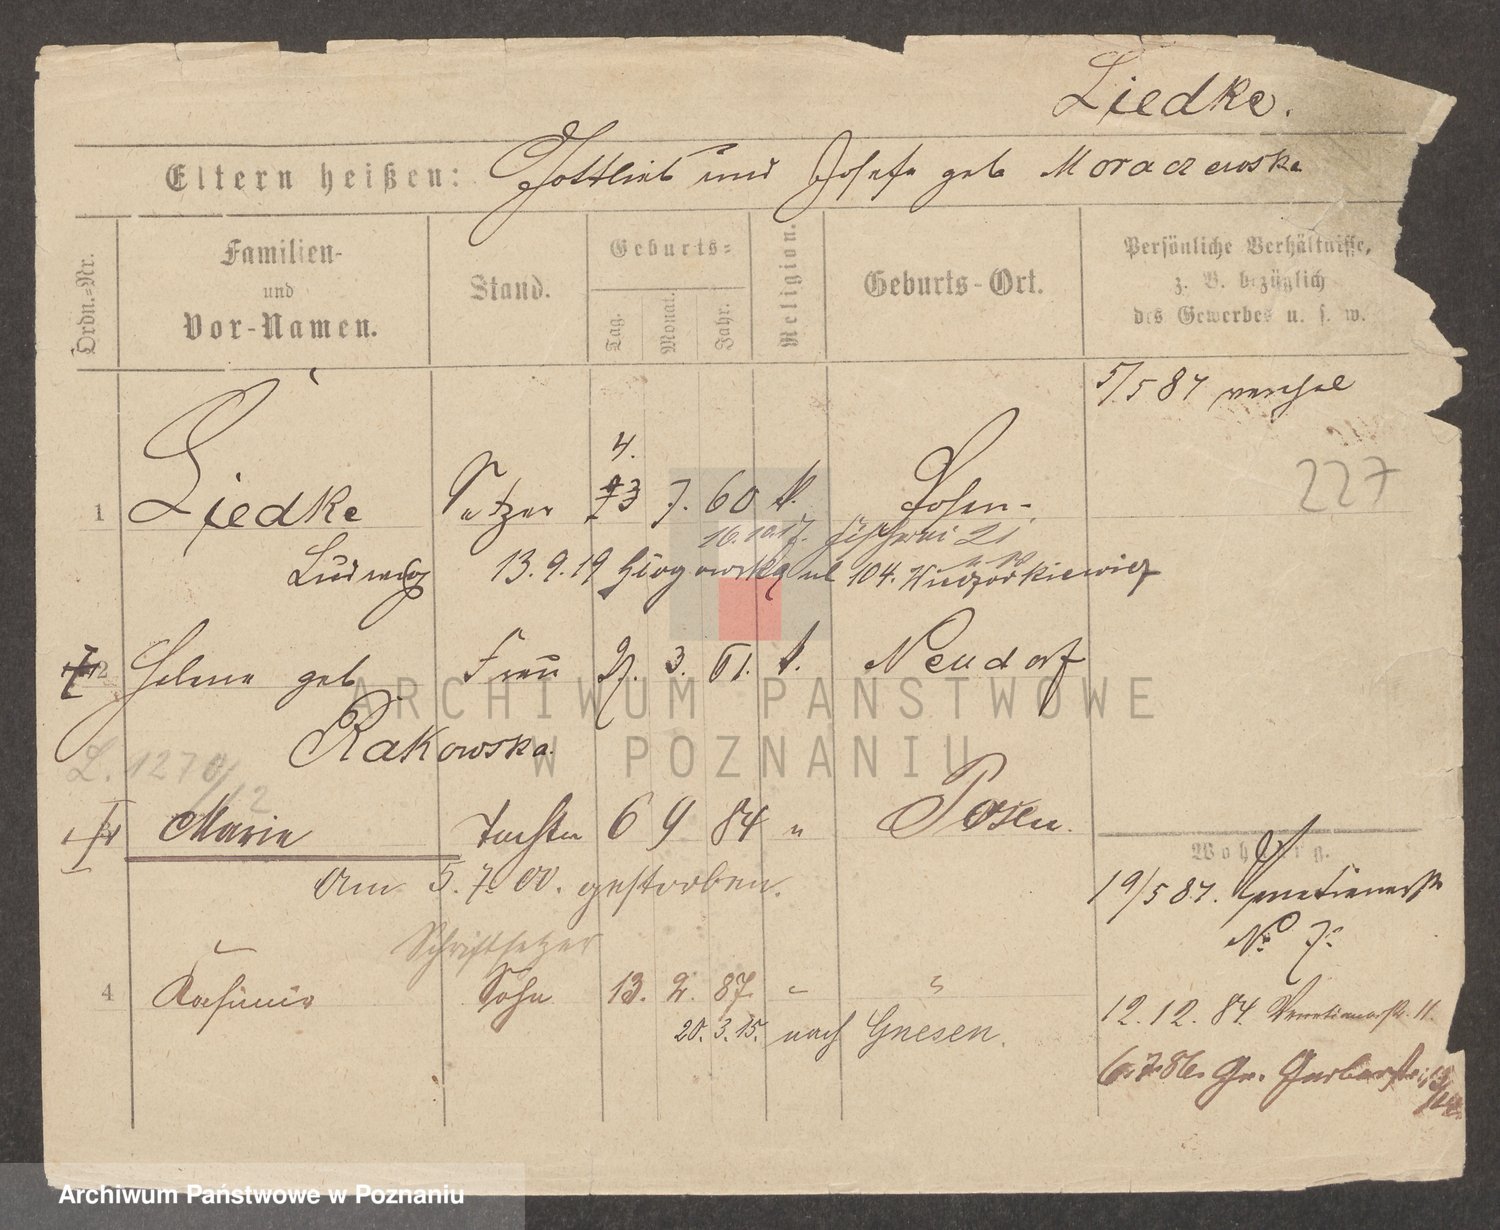 Liedke.
Eltern heißen: Gottlieb und Josefa geb Moraczewska
Ordn.-Nr.
Familien- und Vor-Namen.
Stand.
Geburts-
Tag. Monat. Jahr.
Religion.
Geburts-Ort.
Persönliche Verhältnisse,
z. B. bezüglich
des Gewerbes u. s. w.
5/5 84
227
4.
1 Liedke Setzer 13 7. 60 k. Posen.
16.10.17.
Ludwig 13.9.19 Głogowska ul 104.
2 Helene geb Frau 27. 3. 61. k. Neudorf
Rakowska
L. 1270/12
3 Marie Tochter 6 9 84 " Posen.
am 5.7.00. gestorben.
Schriftsetzer
4 Kasimir Sohn 13. 2. 87.
20.3.15. nach Gnesen.
Wohnung.
19/5 84. Venetianerstr
No 7.
12.12.84. Venetianerstr. 11.
6.7.86. Gr. Gerberstr.
ARCHIWUM PAŃSTWOWE
W POZNANIU
Archiwum Państwowe w Poznaniu